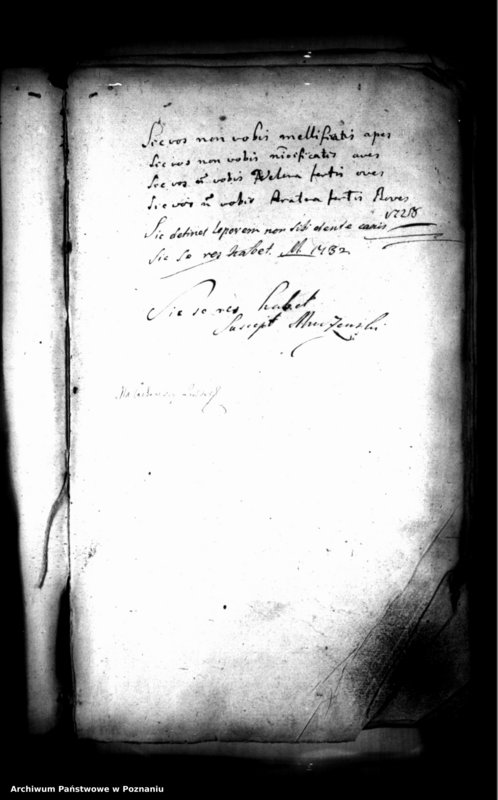 Sic vos non vobis mellificatis apes
Sic vos non vobis nidificatis aves
Sic vos n̄ vobis Vellera fertis oves
Sic vos n̄ vobis Aratra fertis Boves
Sic detinet leporem non sibi dente canis
Sic se res habet. M. 1782
Sic se res habet
Suscept
Archiwum Państwowe w Poznaniu